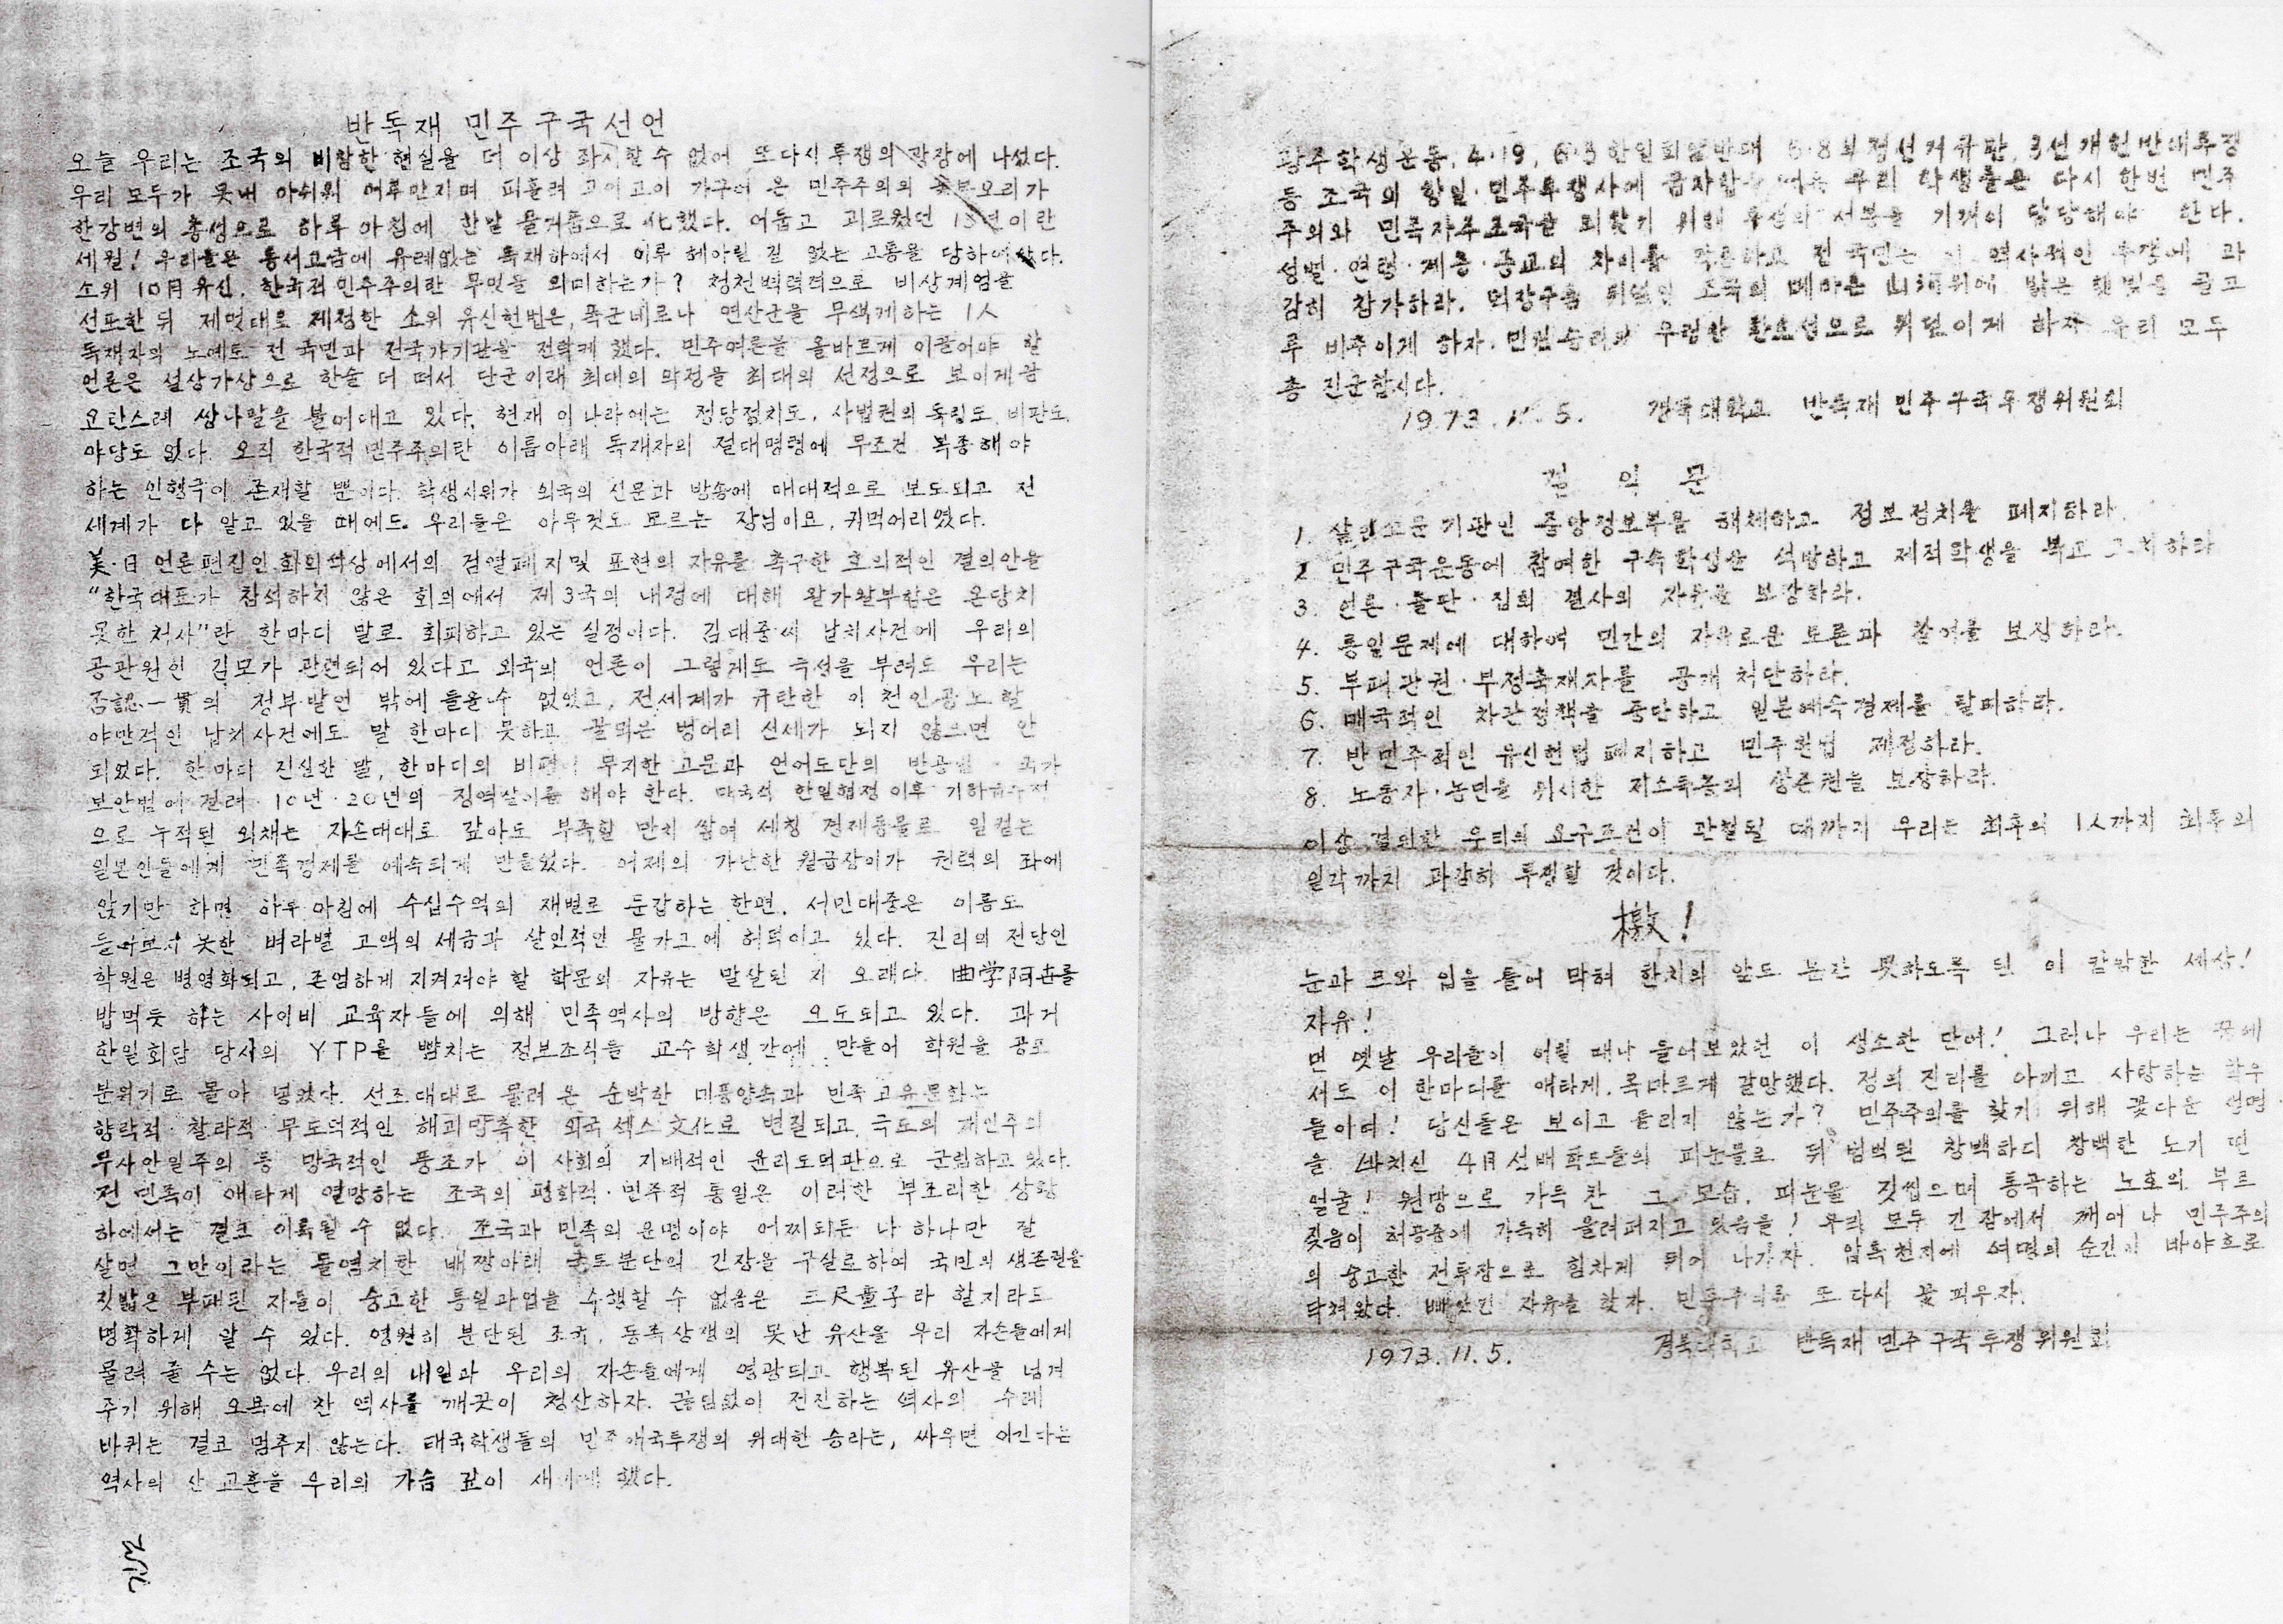 반독재 민주 구국선언
오늘 우리는 조국의 비참한 현실을 더 이상 좌시할 수 없어 또다시 투쟁의 광장에 나섰다.
우리 모두가 못내 아쉬워 어루만지며 피흘려 고이고이 가꾸어 온 민주주의의 꽃봉오리가
한강변의 총성으로 하루 아침에 한낱 물거품으로 化했다. 어둡고 괴로웠던 13년이란
세월! 우리들은 동서고금에 유례없는 독재하에서 이루 헤아릴 길 없는 고통을 당하여 왔다.
소위 10月유신, 한국적 민주주의란 무엇을 의미하는가? 청천벽력적으로 비상계엄을
선포한 뒤 제멋대로 제정한 소위 유신헌법은, 폭군네로나 연산군을 무색케하는 1人
독재자의 노예로 전 국민과 전국가기관을 전락케 했다. 민주여론을 올바르게 이끌어야 할
언론은 설상가상으로 한술 더 떠서 단군이래 최대의 악정을 최대의 선정으로 보이게끔
요란스레 쌍나팔을 불어대고 있다. 현재 이 나라에는 정당정치도, 사법권의 독립도, 비판도,
야당도 없다. 오직 한국적 민주주의란 이름아래 독재자의 절대명령에 무조건 복종해야
하는 인형극이 존재할 뿐이다. 학생시위가 외국의 신문과 방송에 대대적으로 보도되고 전
세계가 다 알고 있을 때에도 우리들은 아무것도 모르는 장님이요, 귀먹어리였다.
美·日 언론편집인 회의석상에서의 검열폐지및 표현의 자유를 촉구한 호의적인 결의안을
"한국대표가 참석하지 않은 회의에서 제3국의 내정에 대해 왈가왈부함은 온당치
못한 처사"란 한마디 말로 회피하고 있는 실정이다. 김대중씨 납치사건에 우리의
공관원인 김모가 관련되어 있다고 외국의 언론이 그렇게도 극성을 부려도 우리는
否認一貫의 정부발언 밖에 들을수 없었고, 전세계가 규탄한 이 천인공노할
야만적인 납치사건에도 말 한마디 못하고 꿀먹은 벙어리 신세가 되지 않으면 안
되었다. 한마디 진실한 말, 한마디의 비판 무지한 고문과 언어도단의 반공법·국가
보안법에 걸려 10년·20년의 징역살이를 해야 한다. 매국적 한일협정이후 기하급수적
으로 누적된 외채는 자손대대로 갚아도 부족할 만치 쌓여 세칭 경제동물로 일컫는
일본인들에게 민족경제를 예속되게 만들었다. 어제의 가난한 월급장이가 권력의 좌에
앉기만 하면 하루 아침에 수십수억의 재벌로 둔갑하는 한편, 서민대중은 이름도
들어보지 못한 벼라별 고액의 세금과 살인적인 물가고에 허덕이고 있다. 진리의 전당인
학원은 병영화되고, 존엄하게 지켜져야 할 학문의 자유는 말살된 지 오래다. 曲学阿世를
밥먹듯 하는 사이비 교육자들에 의해 민족역사의 방향은 오도되고 있다. 과거
한일회담 당시의 YTP를 뺨치는 정보조직을 교수학생간에 만들어 학원을 공포
분위기로 몰아 넣었다. 선조대대로 물려 온 순박한 미풍양속과 민족고유문화는
향락적·찰라적·무도덕적인 해괴망측한 외국 섹스文化로 변질되고 극도의 개인주의
무사안일주의 등 망국적인 풍조가 이 사회의 지배적인 윤리도덕관으로 군림하고 있다.
전 민족이 애타게 열망하는 조국의 평화적·민주적 통일은 이러한 부조리한 상황
하에서는 결코 이룩될 수 없다. 조국과 민족의 운명이야 어찌되든 나 하나만 잘
살면 그만이라는 몰염치한 배짱아래 국토분단의 긴장을 구실로하여 국민의 생존권을
짓밟은 부패된 자들이 숭고한 통일과업을 수행할 수 없음은 三尺童子라 할지라도
명확하게 알 수 있다. 영원히 분단된 조국, 동족상쟁의 못난 유산을 우리 자손들에게
물려 줄 수는 없다. 우리의 내일과 우리의 자손들에게 영광되고 행복된 유산을 넘겨
주기 위해 오욕에 찬 역사를 깨끗이 청산하자. 끊임없이 전진하는 역사의 수레
바퀴는 결코 멈추지 않는다. 태국학생들의 민주애국투쟁의 위대한 승리는, 싸우면 이긴다는
역사의 산 교훈을 우리의 가슴 깊이 새기게 했다.
광주학생운동, 4·19, 6·3한일회담반대 6·8부정선거규탄, 3선개헌반대투쟁
등 조국의 항일·민주투쟁사에 금자탑을 우리 학생들은 다시 한번 민주
주의와 민족자주조국을 되찾기 위해 투쟁의 선봉을 기꺼이 담당해야 한다.
성별·연령·계층·종교의 차이를 막론하고 전 국민은 이 역사적인 투쟁에 과
감히 참가하라. 조국의 메마른 山河위에 밝은 햇빛을 골고
루 비추이게 하자. 민권승리의 우렁찬 환호성으로 뒤덮이게 하자. 우리 모두
총 진군합시다.
1973. 11. 5. 경북대학교 반독재 민주구국투쟁위원회
결 의 문
1. 살인고문기관인 중앙정보부를 해체하고 정보정치를 폐지하라.
2. 민주구국운동에 참여한 구속학생을 석방하고 제적학생을 복교 조치하라
3. 언론·출판·집회 결사의 자유를 보장하라.
4. 통일문제에 대하여 민간의 자유로운 토론과 참여를 보장하라.
5. 부패관권·부정축재자를 공개 처단하라.
6. 매국적인 차관정책을 중단하고 일본예속경제를 탈피하라.
7. 반민주적인 유신헌법 폐지하고 민주헌법 제정하라.
8. 노동자·농민을 위시한 저소득층의 생존권을 보장하라.
이상 결의한 우리의 요구조건이 관철될 때까지 우리는 최후의 1人까지 최후의
일각까지 과감히 투쟁할 것이다.
檄!
눈과 코와 입을 틀어 막혀 한치의 앞도 분간 못하도록 된 이 캄캄한 세상!
자유!
먼 옛날 우리들이 어릴 때나 들어보았던 이 생소한 단어! 그러나 우리는 꿈에
서도 이 한마디를 애타게, 목마르게 갈망했다. 정의 진리를 아끼고 사랑하는 학우
들이여! 당신들은 보이고 들리지 않는가? 민주주의를 찾기 위해 꽃다운 생명
을 바치신 4月 선배학도들의 피눈물로 뒤범벅된 창백하디 창백한 노기 띤
얼굴! 원망으로 가득 찬 그 모습, 피눈물 짓씹으며 통곡하는 노호의 부르
짖음이 허공중에 가득히 울려퍼지고 있음을! 우리 모두 긴 잠에서 깨어 나 민주주의
의 숭고한 전투장으로 힘차게 뛰어 나가자. 암흑천지에 여명의 순간이 바야흐로
닥쳐왔다. 빼앗긴 자유를 찾자. 또 다시 꽃 피우자.
1973. 11. 5. 경북대학교 반독재 민주구국투쟁위원회